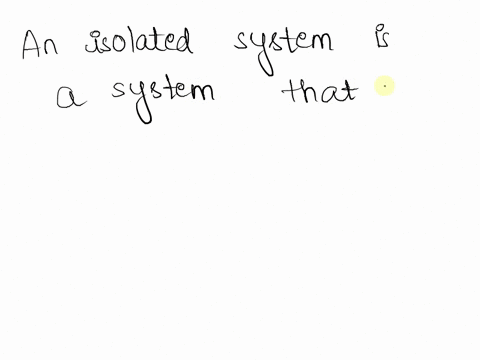 An isolated system is
a system that